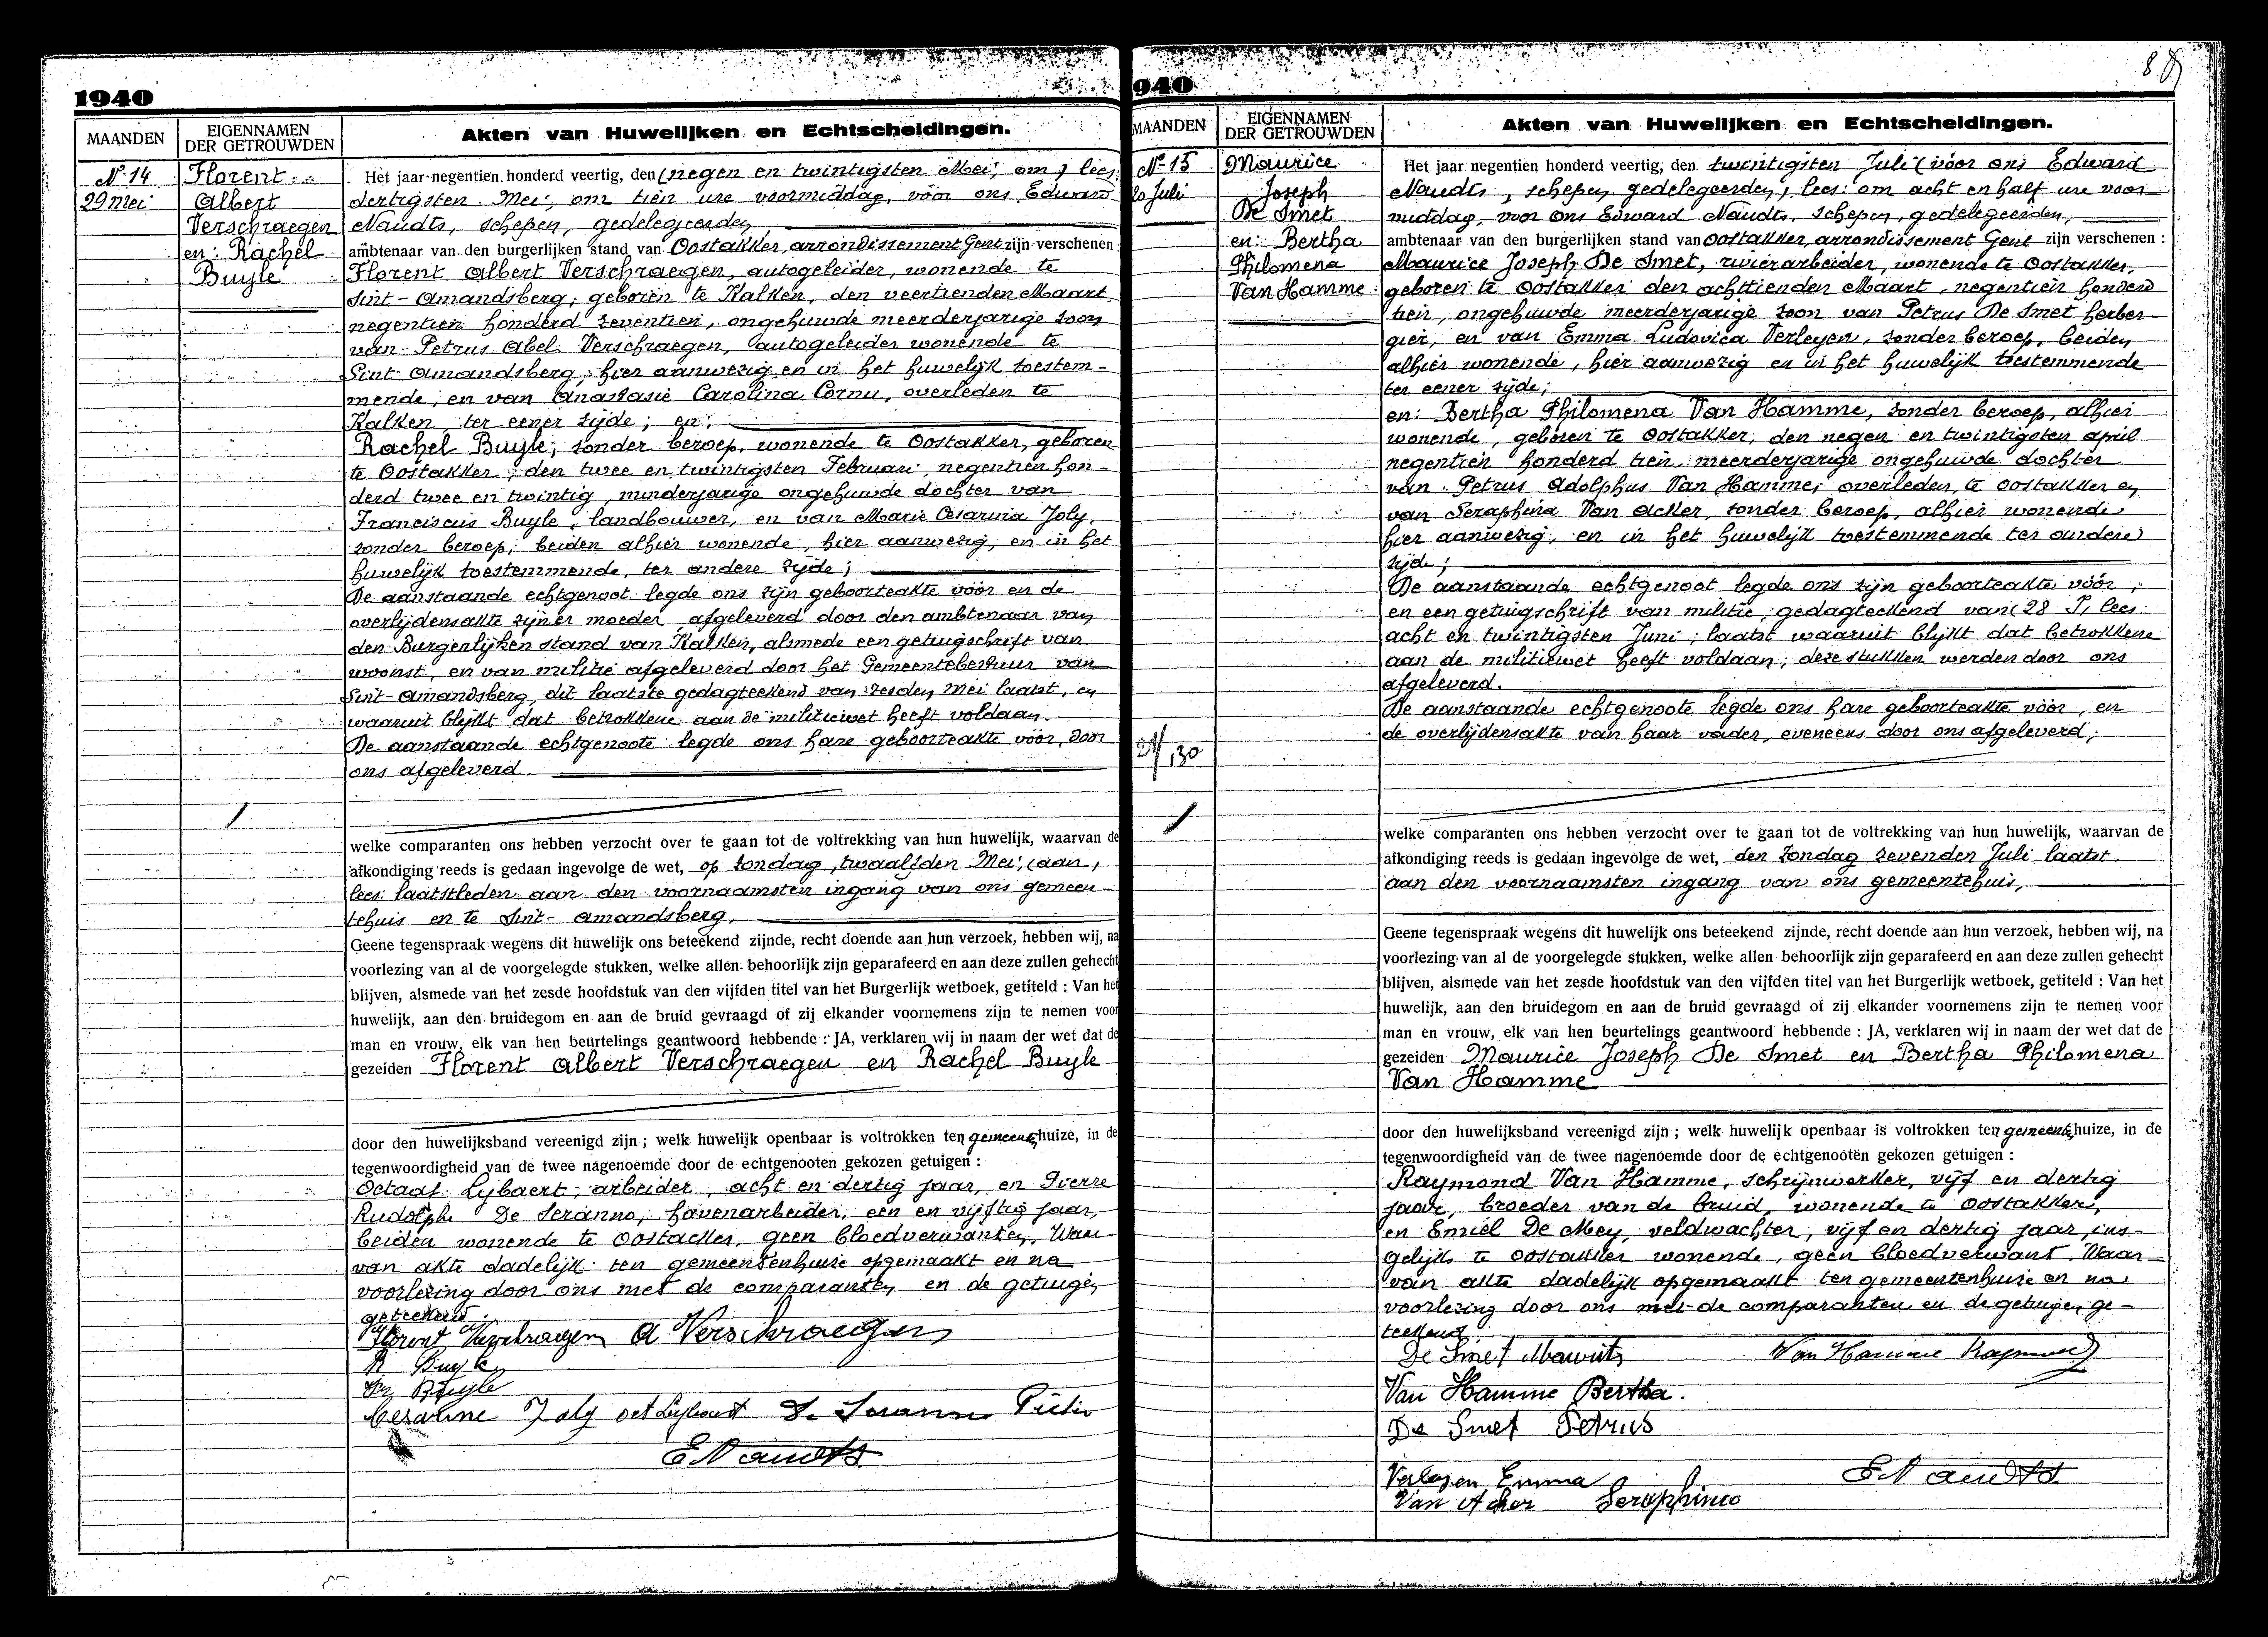 1940
MAANDEN
EIGENNAMEN
DER GETROUWDEN
Akten van Huwelijken en Echtscheidingen.
Nr 14
29 mei
Florent
Albert
Verschraegen
en: Rachel
Buyle
Het jaar negentien honderd veertig, den (negen en twintigsten Mei, om) lees:
dertigsten Mei, om tien ure voormiddag, vóór ons Edward
Naudts, schepen, gedelegeerden
ambtenaar van den burgerlijken stand van Oostakker, arrondissement Gent zijn verschenen
Florent Albert Verschraegen, autogeleider, wonende te
Sint-Amandsberg, geboren te Kalken, den veertienden Maart
negentien honderd zeventien, ongehuwde meerderjarige zoon
van Petrus Abel Verschraegen, autogeleider wonende te
Sint-Amandsberg, hier aanwezig en in het huwelijk toestem-
mende, en van Anastasie Carolina Cornu, overleden te
Kalken, ter eener zijde; en:
Rachel Buyle, zonder beroep, wonende te Oostakker, geboren
te Oostakker, den twee en twintigsten Februari, negentien hon-
derd twee en twintig, minderjarige ongehuwde dochter van
Franciscus Buyle, landbouwer, en van Marie Cesarina Joly,
zonder beroep, beiden alhier wonende, hier aanwezig, en in het
huwelijk toestemmende, ter andere zijde;
De aanstaande echtgenoot legde ons zijn geboorteakte vóór en de
overlijdensakte zijner moeder, afgeleverd door den ambtenaar van
den Burgerlijken stand van Kalken, alsmede een getuigschrift van
woonst, en van militie afgeleverd door het Gemeentebestuur van
Sint-Amandsberg, dit laatste gedagteekend van zesden Mei laatst, en
waaruit blijkt dat betrokkene aan de militiewet heeft voldaan.
De aanstaande echtgenoote legde ons hare geboorteakte vóór, door
ons afgeleverd.
welke comparanten ons hebben verzocht over te gaan tot de voltrekking van hun huwelijk, waarvan de
afkondiging reeds is gedaan ingevolge de wet, op zondag, twaalfden Mei, (aan)
lees: laatstleden aan den voornaamsten ingang van ons gemeen-
tehuis en te Sint-Amandsberg.
Geene tegenspraak wegens dit huwelijk ons beteekend zijnde, recht doende aan hun verzoek, hebben wij, na
voorlezing van al de voorgelegde stukken, welke allen behoorlijk zijn geparafeerd en aan deze zullen gehecht
blijven, alsmede van het zesde hoofdstuk van den vijfden titel van het Burgerlijk wetboek, getiteld : Van het
huwelijk, aan den bruidegom en aan de bruid gevraagd of zij elkander voornemens zijn te nemen voor
man en vrouw, elk van hen beurtelings geantwoord hebbende : JA, verklaren wij in naam der wet dat de
gezeiden Florent Albert Verschraegen en Rachel Buyle
door den huwelijksband vereenigd zijn ; welk huwelijk openbaar is voltrokken ten gemeentehuize, in de
tegenwoordigheid van de twee nagenoemde door de echtgenooten gekozen getuigen :
Octaaf Lybaert, arbeider, acht en dertig jaar, en Pierre
Rudolph De Seranno, havenarbeider, een en vijftig jaar,
beiden wonende te Oostacker, geen bloedverwanten, Waar-
van akte dadelijk ten gemeentenhuize opgemaakt en na
voorlezing door ons met de comparanten en de getuigen
geteekend.
Florent Verschraegen A Verschraegen
R Buyle
Fr Buyle
Cesarine Joly Oct Lybaert De Seranno Pieter
E Naudts
940
8
MAANDEN
EIGENNAMEN
DER GETROUWDEN
Akten van Huwelijken en Echtscheidingen.
Nr 15
20 Juli
Maurice
Joseph
De Smet
en: Bertha
Philomena
Van Hamme
Het jaar negentien honderd veertig, den twintigsten Juli (vóór ons Edward
Naudts, schepen gedelegeerden), lees: om acht en half ure voor
middag, voor ons Edward Naudts, schepen, gedelegeerden,
ambtenaar van den burgerlijken stand van Oostakker, arrondissement Gent zijn verschenen :
Maurice Joseph De Smet, zwierarbeider, wonende te Oostakker,
geboren te Oostakker den achttienden Maart, negentien honderd
tien, ongehuwde meerderjarige zoon van Petrus De Smet herber-
gier, en van Emma Ludovica Verleyen, zonder beroep, beiden
alhier wonende, hier aanwezig en in het huwelijk toestemmende
ter eener zijde;
en: Bertha Philomena Van Hamme, zonder beroep, alhier
wonende, geboren te Oostakker, den negen en twintigsten april
negentien honderd tien, meerderjarige ongehuwde dochter
van Petrus Adolphus Van Hamme, overleden, te Oostakker en
van Seraphina Van Acker, zonder beroep, alhier wonende
hier aanwezig, en in het huwelijk toestemmende ter andere
zijde;
De aanstaande echtgenoot legde ons zijn geboorteakte vóór,
en een getuigschrift van militie, gedagteekend van (28 J), lees:
acht en twintigsten Juni, laatst waaruit blijkt dat betrokkene
aan de militiewet heeft voldaan; deze stukken werden door ons
afgeleverd.
De aanstaande echtgenoote legde ons hare geboorteakte vóór, en
de overlijdensakte van haar vader, eveneens door ons afgeleverd;
welke comparanten ons hebben verzocht over te gaan tot de voltrekking van hun huwelijk, waarvan de
afkondiging reeds is gedaan ingevolge de wet, den zondag zevenden Juli laatst,
aan den voornaamsten ingang van ons gemeentehuis,
Geene tegenspraak wegens dit huwelijk ons beteekend zijnde, recht doende aan hun verzoek, hebben wij, na
voorlezing van al de voorgelegde stukken, welke allen behoorlijk zijn geparafeerd en aan deze zullen gehecht
blijven, alsmede van het zesde hoofdstuk van den vijfden titel van het Burgerlijk wetboek, getiteld : Van het
huwelijk, aan den bruidegom en aan de bruid gevraagd of zij elkander voornemens zijn te nemen voor
man en vrouw, elk van hen beurtelings geantwoord hebbende : JA, verklaren wij in naam der wet dat de
gezeiden Maurice Joseph De Smet en Bertha Philomena
Van Hamme
door den huwelijksband vereenigd zijn ; welk huwelijk openbaar is voltrokken ten gemeentehuize, in de
tegenwoordigheid van de twee nagenoemde door de echtgenooten gekozen getuigen :
Raymond Van Hamme, schrijnwerker, vijf en dertig
jaar, broeder van de bruid, wonende te Oostakker,
en Emiel De Mey, veldwachter, vijf en dertig jaar, ins-
gelijks te Oostakker wonende, geen bloedverwant. Waar-
van akte dadelijk opgemaakt ten gemeentenhuize en na
voorlezing door ons met de comparanten en de getuigen ge-
teekend
De Smet Maurits Van Hamme Raymond
Van Hamme Bertha.
De Smet Petrus
Verleyen Emma E Naudts
Van Acker Seraphina